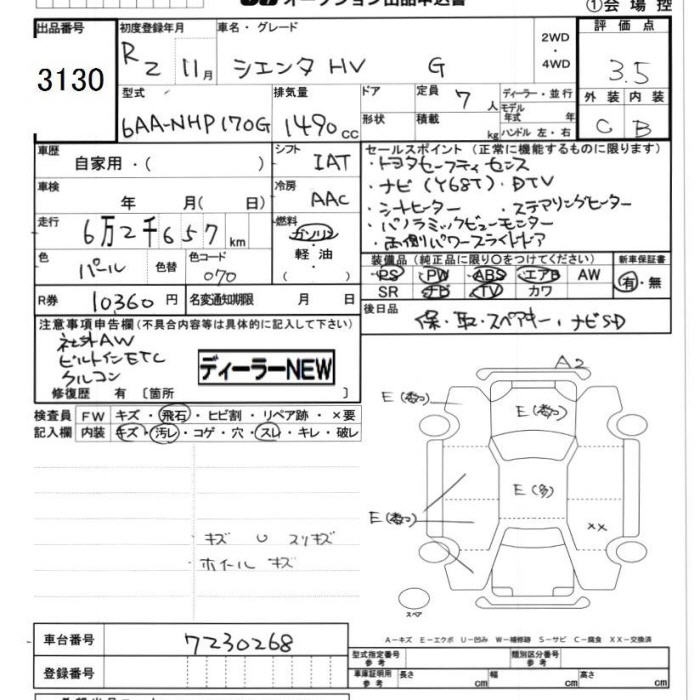 オークション出品申込書 ①会場控
出品番号 初度登録年月 車名・グレード 2WD・4WD 評価点
3130 R2 11月 シエンタ HV G 3.5
型式 排気量 ドア 定員 7人 ディーラー・並行 外装 内装
モデル年式 年
6AA-NHP170G 1490cc 形状 積載 kg ハンドル 左・右 C B
車歴 自家用・( ) シフト IAT セールスポイント (正常に機能するものに限ります)
・トヨタセーフティセンス
車検 年 月( 日) 冷房 AAC ・ナビ(Y68T)・DTV
・シートヒーター ・ステアリングヒーター
走行 6万2千657km 燃料 ガソリン・軽油・( ) ・パノラミックビューモニター
・両側パワースライドドア
色 パール 色替 色コード 070 装備品(純正品に限り○をつけてください) 新車保証書
PS PW ABS エアB AW 有・無
R券 10360円 名変通知期限 月 日 SR ナビ TV カワ
注意事項申告欄(不具合内容等は具体的に記入して下さい) 後日品 保・取・スペアキー・ナビSD
社外AW
ビルトインETC
クルコン
ディーラーNEW
修復歴 有 〔箇所 〕
検査員 FW キズ・飛石・ヒビ割・リペア跡・×要
記入欄 内装 キズ・汚レ・コゲ・穴・スレ・キレ・破レ
A2
E(巻つ) E(巻つ)
E(多)
E(巻つ) ××
キズ U スリキズ
ホイール キズ
スペア
A-キズ E-エクボ U-凹み W-補修跡 S-サビ C-腐食 XX-交換済
車台番号 7230268
型式指定番号 参考 類別区分番号 参考
登録番号 車庫証明用 参考 長さ cm 幅 cm 高さ cm